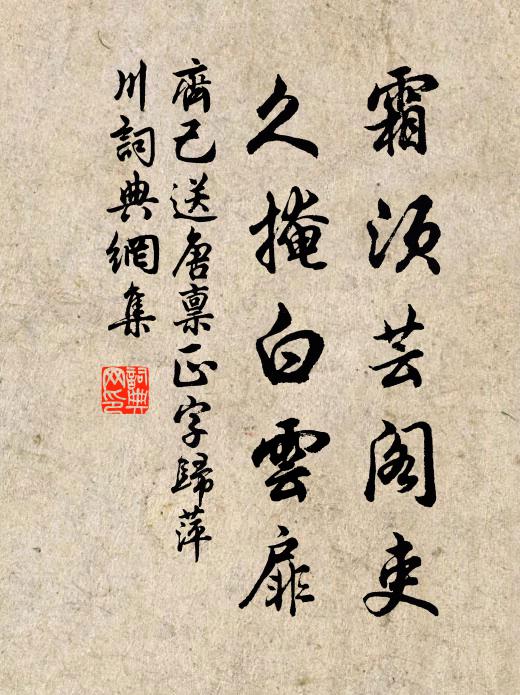 霜須芸閣吏
久掩白雲扉
齊己送唐稟正字歸萍
川詞典網集
詞典
网印